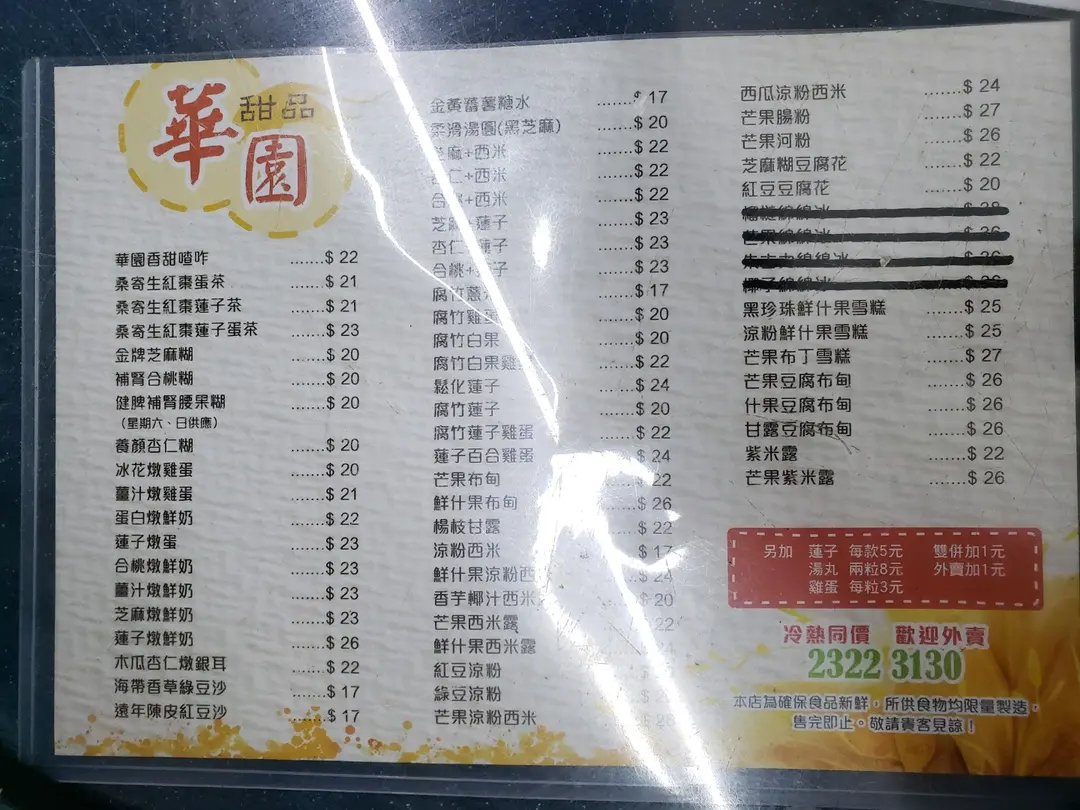 華園
甜品
華園香甜喳咋 .......$ 22
桑寄生紅棗蛋茶 .......$ 21
桑寄生紅棗蓮子茶 .......$ 21
桑寄生紅棗蓮子蛋茶 .......$ 23
金牌芝麻糊 .......$ 20
補腎合桃糊 .......$ 20
健脾補腎腰果糊 .......$ 20
（星期六、日供應）
養顏杏仁糊 .......$ 20
冰花燉雞蛋 .......$ 20
薑汁燉雞蛋 .......$ 21
蛋白燉鮮奶 .......$ 22
蓮子燉蛋 .......$ 23
合桃燉鮮奶 .......$ 23
薑汁燉鮮奶 .......$ 23
芝麻燉鮮奶 .......$ 23
蓮子燉鮮奶 .......$ 26
木瓜杏仁燉銀耳 .......$ 22
海帶香草綠豆沙 .......$ 17
遠年陳皮紅豆沙 .......$ 17
金黃蕃薯糖水 .......$ 17
柔滑湯圓(黑芝麻) .......$ 20
芝麻+西米 .......$ 22
杏仁+西米 .......$ 22
合桃+西米 .......$ 22
芝麻+蓮子 .......$ 23
杏仁+蓮子 .......$ 23
合桃+蓮子 .......$ 23
腐竹薏米 .......$ 17
腐竹雞蛋 .......$ 20
腐竹白果 .......$ 20
腐竹白果雞蛋 .......$ 22
鬆化蓮子 .......$ 24
腐竹蓮子 .......$ 20
腐竹蓮子雞蛋 .......$ 22
蓮子百合雞蛋 .......$ 24
芒果布甸 22
鮮什果布甸 ....$ 26
楊枝甘露 ...$ 22
涼粉西米 ...$ 17
鮮什果涼粉西 ..$ 24
香芋椰汁西米 ..$ 20
芒果西米露 22
鮮什果西米露
紅豆涼粉
綠豆涼粉
芒果涼粉西米 26
西瓜涼粉西米 .......$ 24
芒果腸粉 .......$ 27
芒果河粉 .......$ 26
芝麻糊豆腐花 .......$ 22
紅豆豆腐花 .......$ 20
黑珍珠鮮什果雪糕 .......$ 25
涼粉鮮什果雪糕 .......$ 25
芒果布丁雪糕 .......$ 27
芒果豆腐布甸 .......$ 26
什果豆腐布甸 .......$ 26
甘露豆腐布甸 .......$ 26
紫米露 .......$ 22
芒果紫米露 .......$ 26
另加 蓮子 每款5元 雙併加1元
湯丸 兩粒8元 外賣加1元
雞蛋 每粒3元
冷熱同價 歡迎外賣
2322 3130
本店為確保食品新鮮，所供食物均限量製造，
售完即止。敬請貴客見諒！